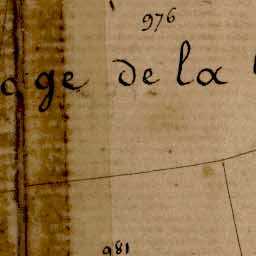 976
age de la
981